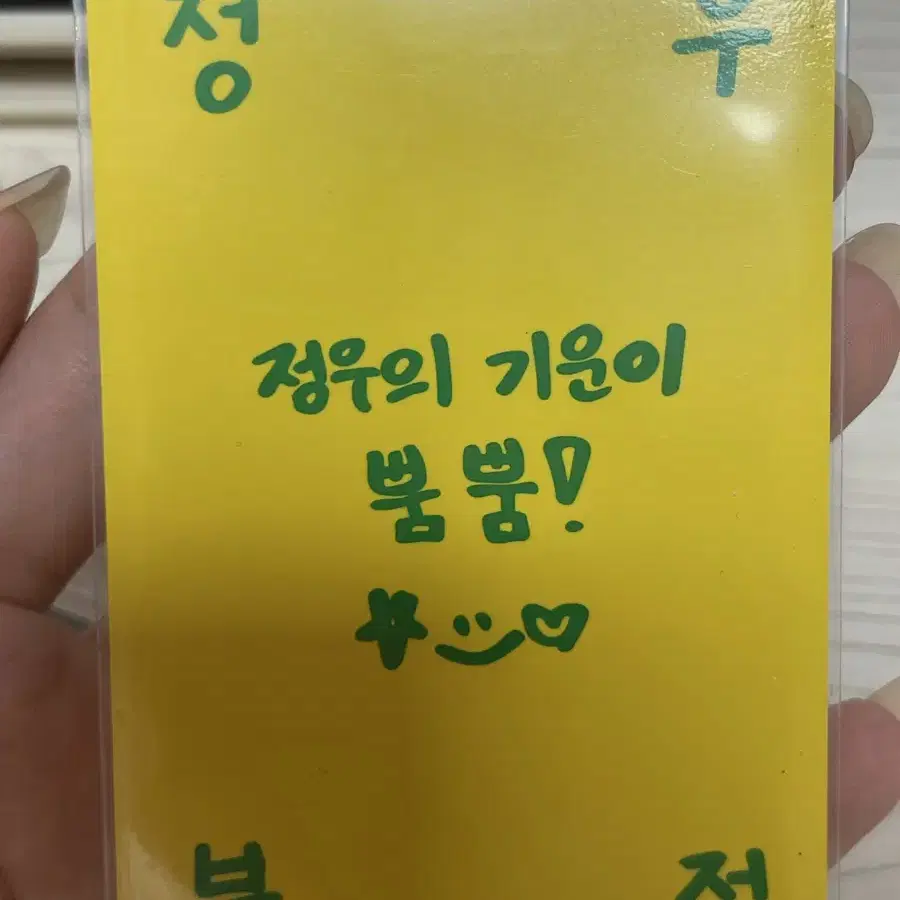 정 우
정우의 기운이
뿜뿜!